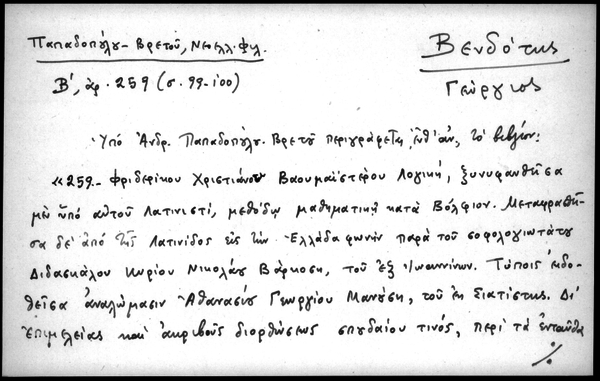 Παπαδοπούλου-Βρετοῦ, Νεοελλ. Φιλ.
Βενδότης
Β', ἀρ. 259 (σ. 99-100)
Γεώργιος
Ὑπὸ Ἀνδρ. Παπαδοπούλου-Βρετοῦ περιγράφεται τὸ βιβλίον:
«259.- Φριδερίκου Χριστιάνου Βαουμαϊστέρου Λογική, ξυνυφανθεῖσα
μὲν ὑπὸ αὐτοῦ Λατινιστί, μεθόδῳ μαθηματικῇ κατὰ Βόλφιον. Μεταφρασθεῖ-
σα δὲ ἀπὸ τῆς Λατινίδος εἰς τὴν Ἑλλάδα φωνὴν παρὰ τοῦ σοφολογιωτάτου
Διδασκάλου Κυρίου Νικολάου Βάρκοση, τοῦ ἐξ Ἰωαννίνων. Τύποις ἐκδο-
θεῖσα ἀναλώμασιν Ἀθανασίου Γεωργίου Μανούση, τοῦ ἐκ Σιατίστης. Δι'
ἐπιμελείας καὶ ἀκριβοῦς διορθώσεως σπουδαίου τινός, περὶ τὰ ἐνταῦθα
./.